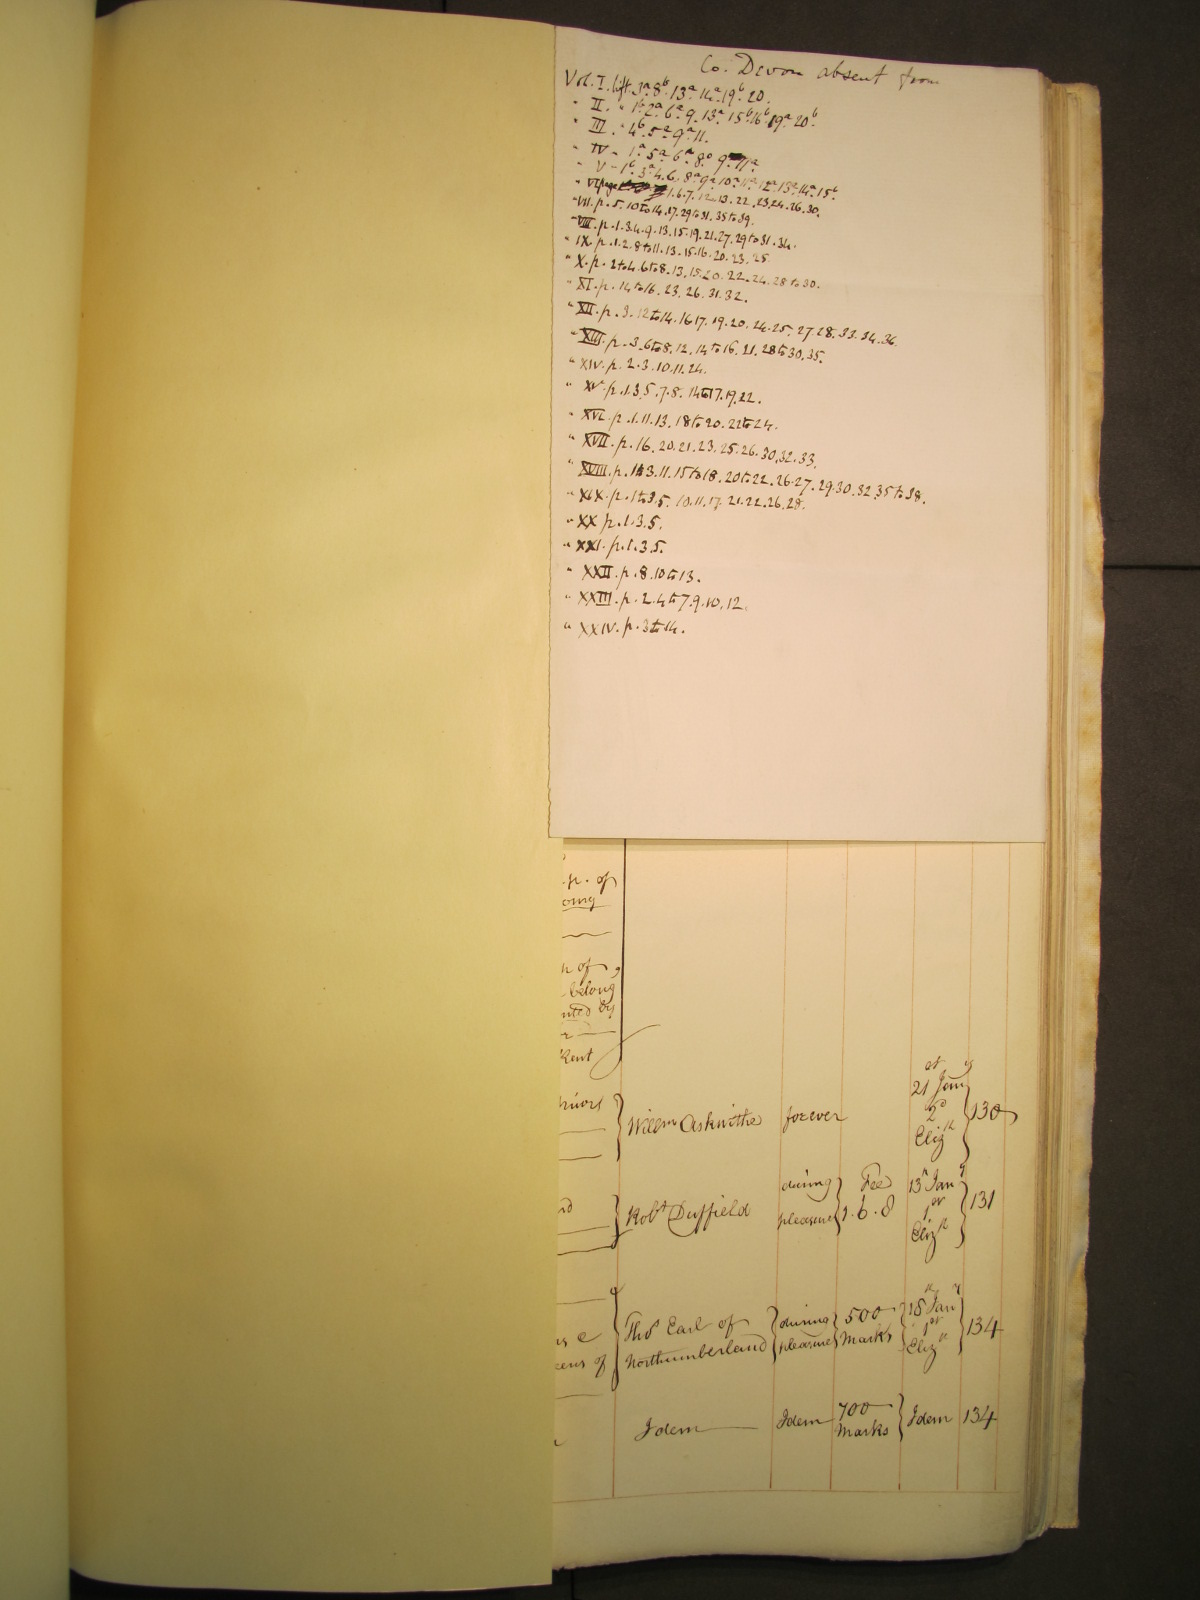 Co. Devon absent from
Vol. I. 3a. 8b. 13a. 14a. 19b. 20.
" II. " 1b. 2a. 6a. 9. 13a. 15b. 16b. 19a. 20b.
" III. " 4b. 5a. 9a. 11.
" IV - 1a. 5a. 6a. 8a. 9a. 11a.
" V - 1b. 3a. 4. 6. 8a. 9a. 10a. 11a. 12a. 13a. 14a. 15b
" VI page 1. 6. 7. 12. 13. 22. 23. 24. 26. 30.
" VII. p. 5. 10 to 14. 17. 29 to 31. 35 to 39.
" VIII. p. 1. 3. 4. 9. 13. 15. 19. 21. 27. 29 to 31. 34.
" IX. p. 1. 2. 8 to 11. 13. 15. 16. 20. 23. 25
" X. p. 2 to 4. 6 to 8. 13. 15. 20. 22. 24. 28 to 30.
" XI. p. 14 to 16. 23. 26. 31. 32.
" XII. p. 3. 12 to 14. 16. 17. 19. 20. 24. 25. 27. 28. 33. 34. 36.
" XIII. p. 3. 6 to 8. 12. 14 to 16. 21. 28 to 30. 35.
" XIV. p. 2. 3. 10. 11. 24.
" XV. p. 1. 3. 5. 7. 8. 14 to 17. 19. 22.
" XVI. p. 1. 11. 13. 18 to 20. 22 to 24.
" XVII. p. 16. 20. 21. 23. 25. 26. 30. 32. 33.
" XVIII. p. 1 to 3. 11. 15 to 18. 20 to 22. 26. 27. 29. 30. 32. 35 to 38.
" XIX. p. 1 to 3. 5. 10. 11. 17. 21. 22. 26. 28.
" XX p. 1. 3. 5.
" XXI. p. 1. 3. 5.
" XXII. p. 8. 10 to 13.
" XXIII. p. 2. 4 to 7. 9. 10. 12.
" XXIV. p. 3 to 14.
p. of
of
belong
by
Kent
Willm Askwithe forever 21 Jany 2d Elizth 130
Robt Duffield during pleasure Fee 2.6.8 13th Jany 1st Elizth 131
Thos Earl of Northumberland during pleasure 500 Marks 18th Jany 1st Elizth 134
Idem Idem 700 Marks Idem 134